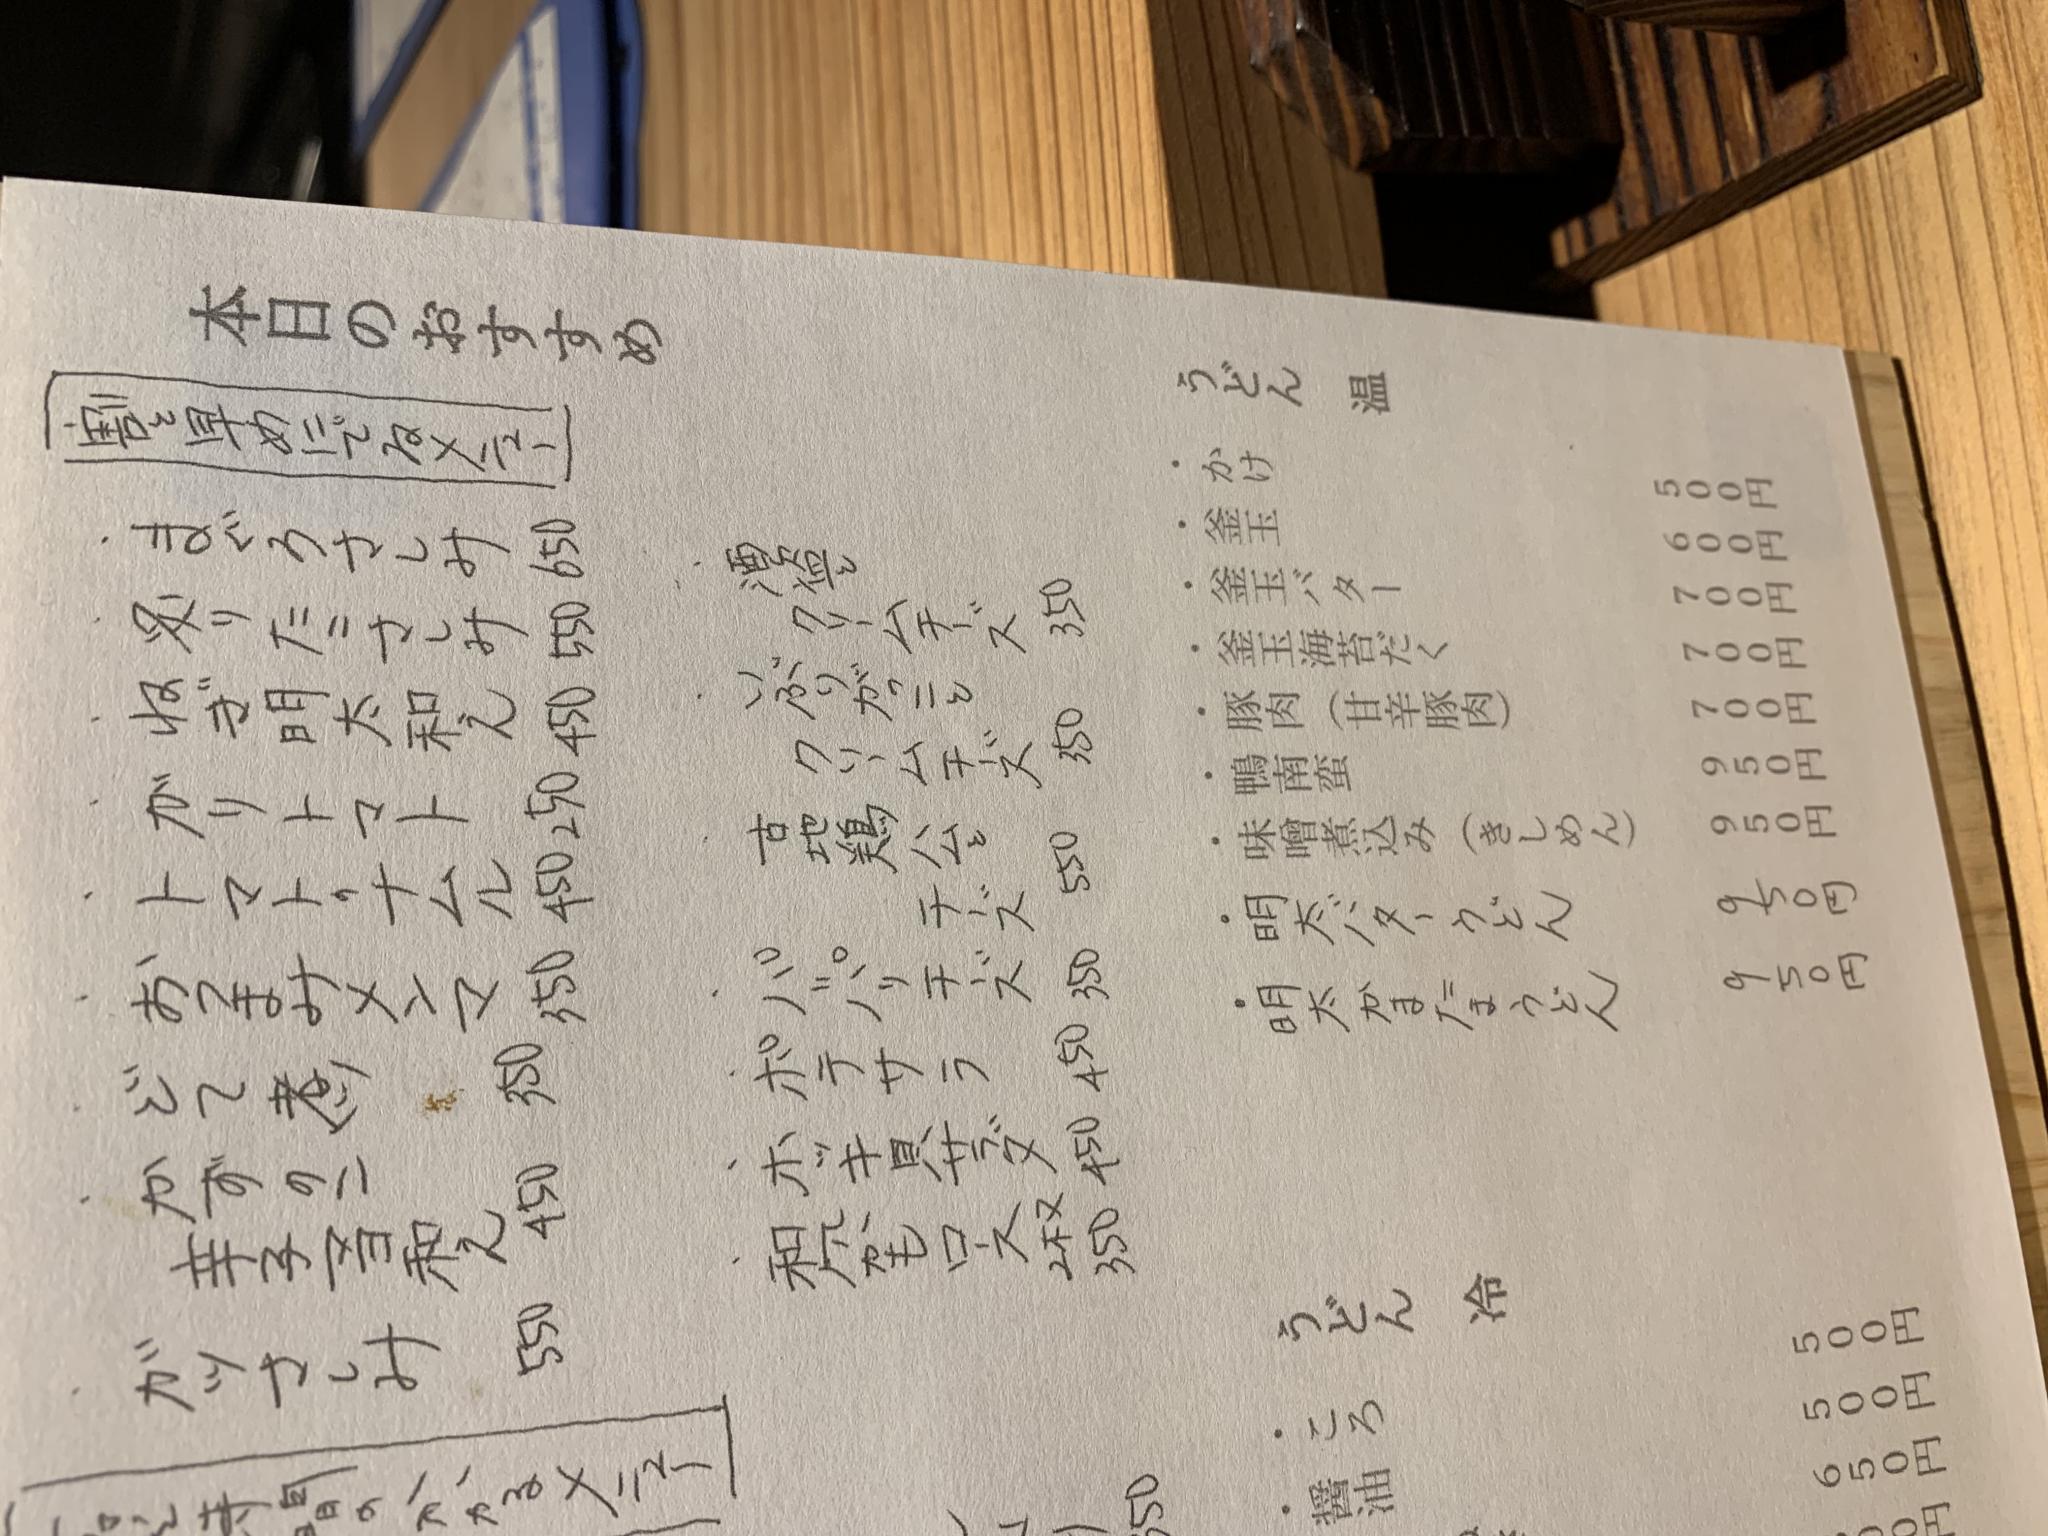 本日のおすすめ
割と早めにでるメニュー
・まぐろさしみ 650
・炙りだこさしみ 550
・ねぎ明太和え 450
・ガリトマト 250
・トマトのナムル 450
・おつまみメンマ 350
・どて煮 350
・かずのこ
辛子マヨ和え 450
・ガツさしみ 550
・酒盗と
クリームチーズ 350
・いぶりガッコと
クリームチーズ 350
古地鶏ハムと
チーズ 550
・パリパリチーズ 350
ポテサラ 450
・ホッキ貝サラダ 450
・かもロース 2枚 350
時間のかかるメニュー
うどん 温
・かけ 500円
・釜玉 600円
・釜玉バター 700円
・釜玉海苔だく 700円
・豚肉(甘辛豚肉) 700円
・鴨南蛮 950円
・味噌煮込み(きしめん) 950円
・明太バターうどん 950円
・明太かまたまうどん 950円
うどん 冷
・ころ 500円
・醤油 500円
650円